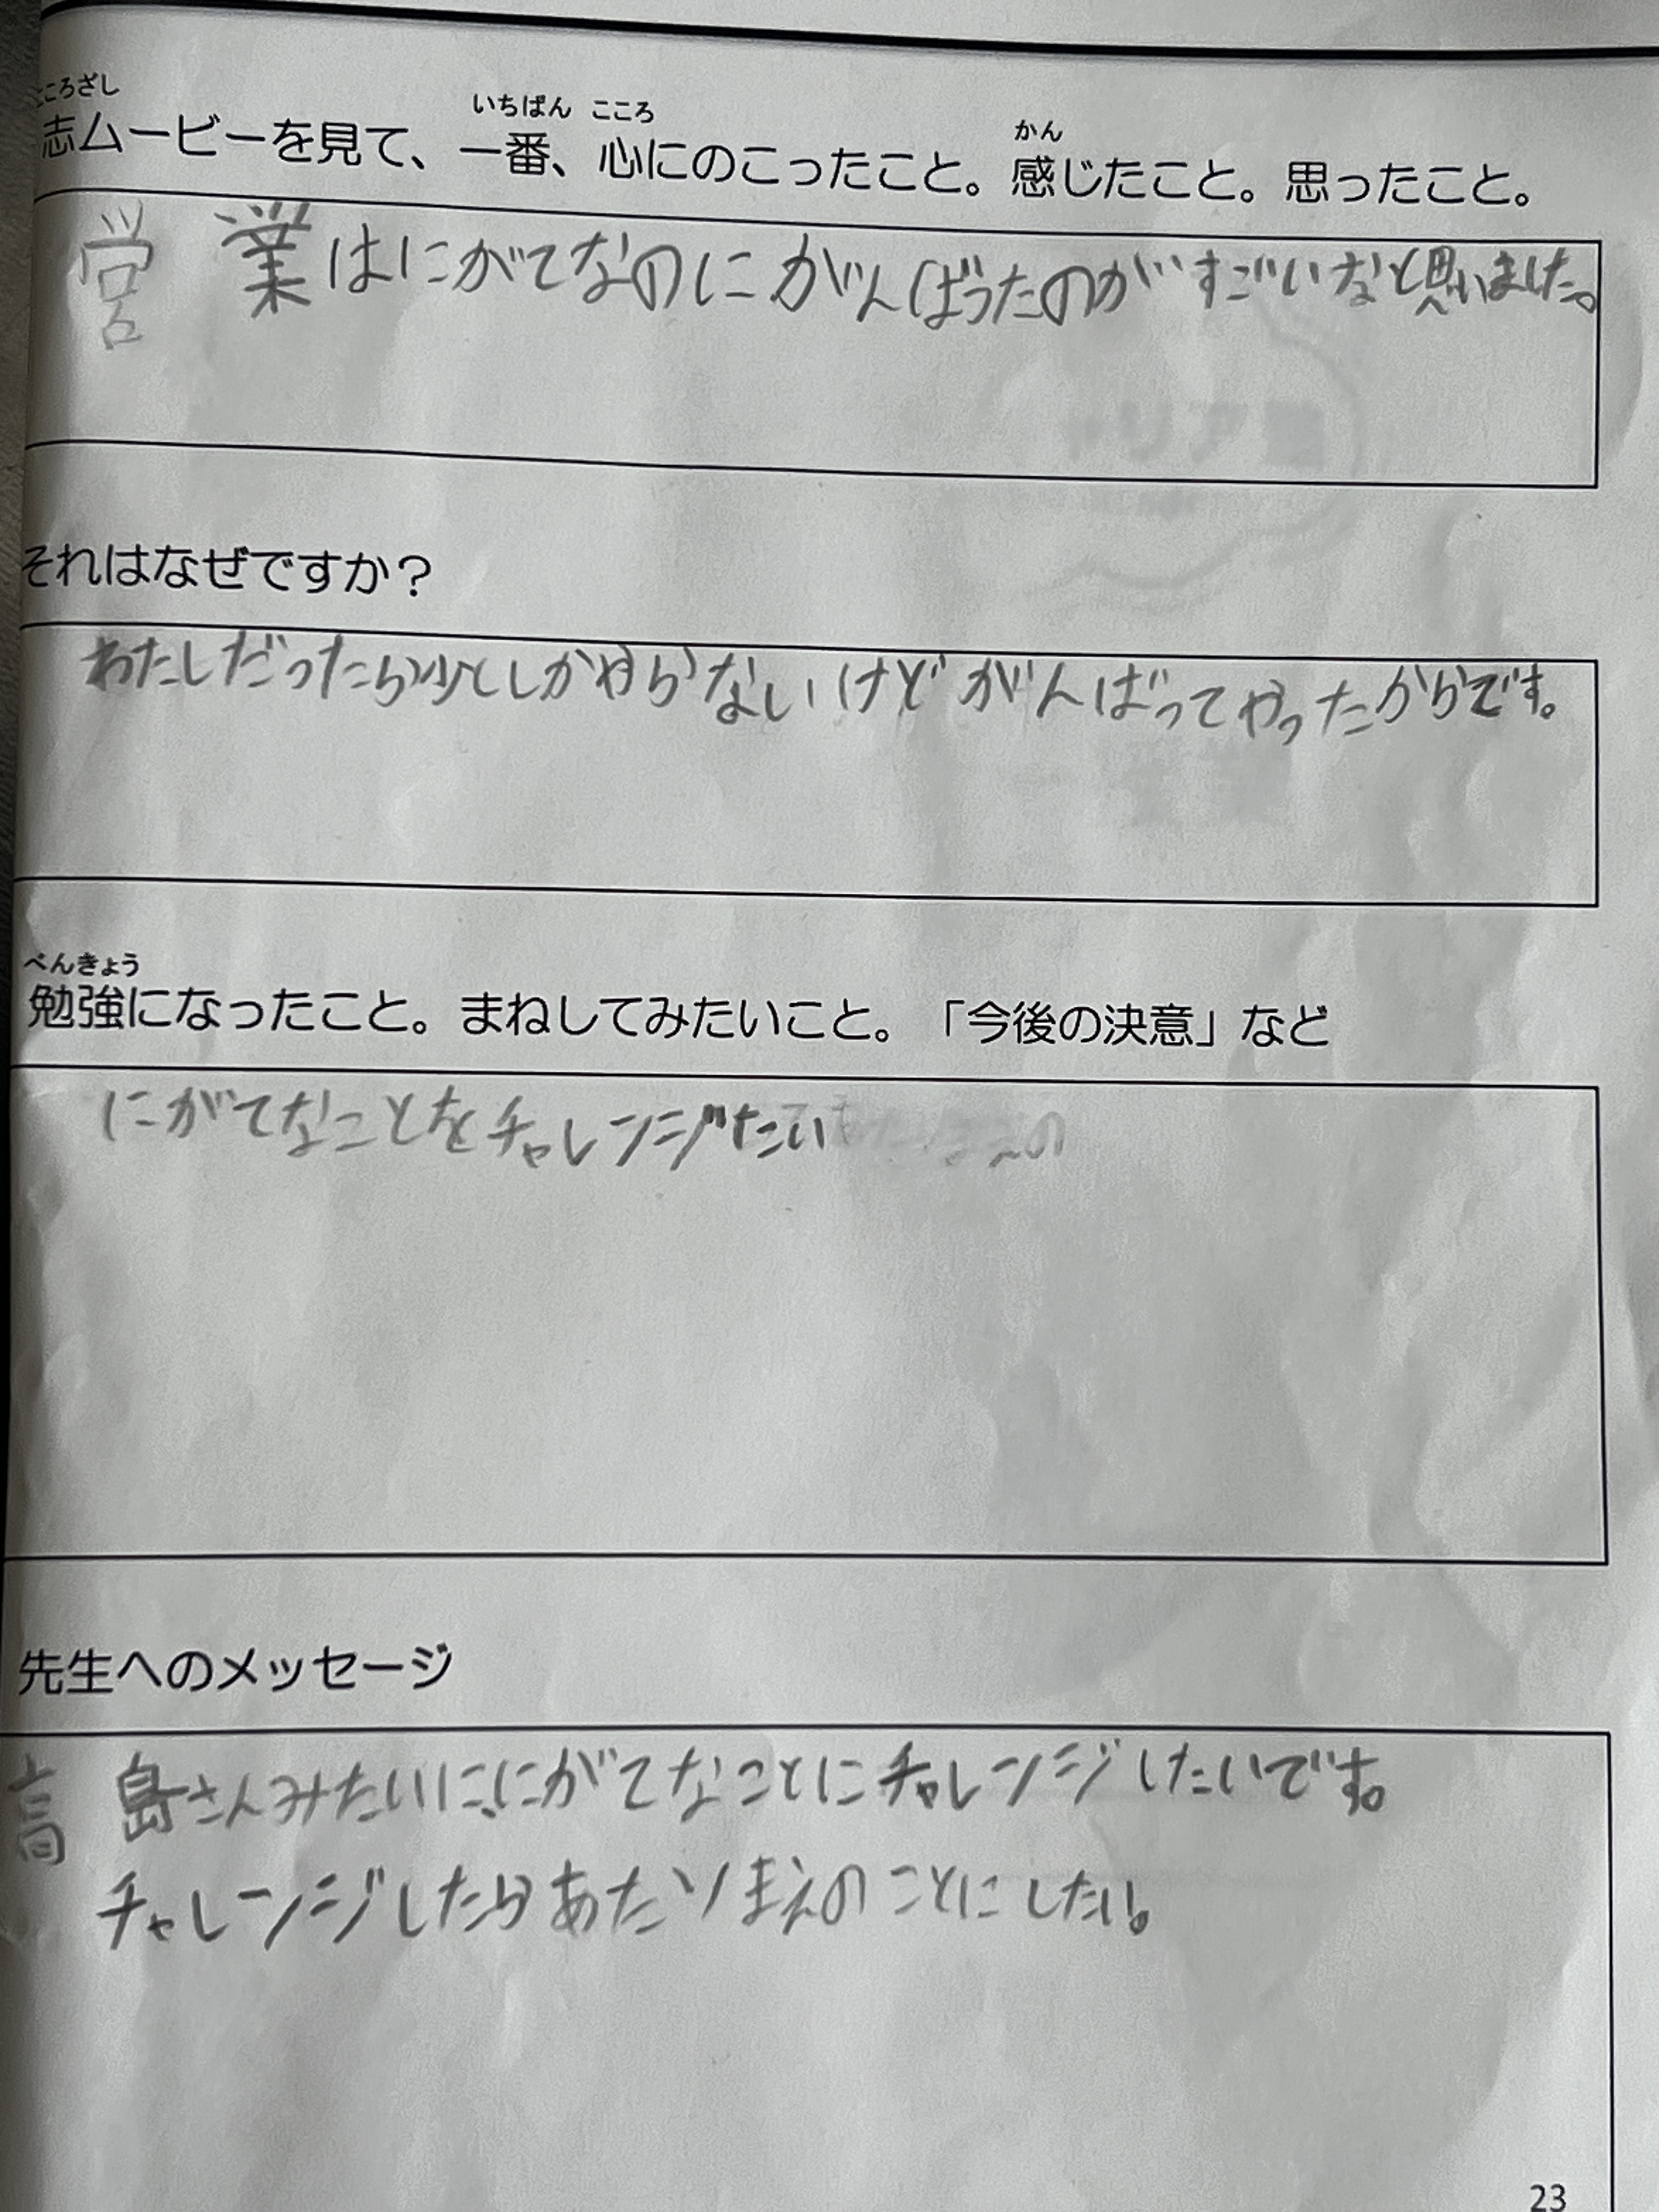 こころざし
志ムービーを見て、一番、心にのこったこと。感じたこと。思ったこと。
いちばん こころ
かん
営業はにがてなのにがんばったのがすごいなと思いました。
それはなぜですか？
わたしだったら少ししかやらないけどがんばってやったからです。
べんきょう
勉強になったこと。まねしてみたいこと。「今後の決意」など
にがてなことをチャレンジたい
先生へのメッセージ
高島さんみたいに、にがてなことにチャレンジしたいです。
チャレンジしたらあたりまえのことにしたい。
23